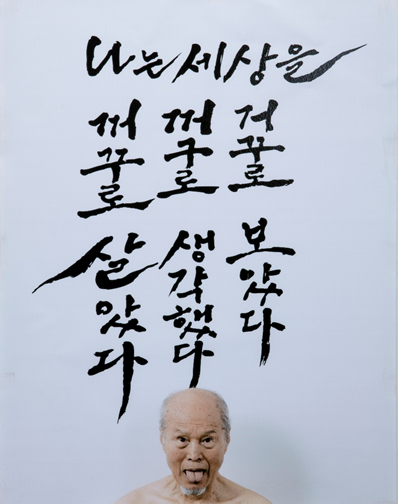 나는 세상을
거꾸로 보았다
꺼구로 생각했다
꺼꾸로 살았다